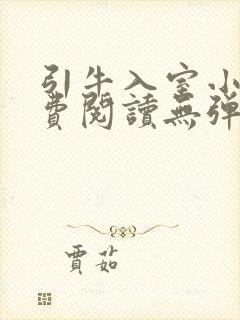 引牛入室小
費閱讀無彈
賈茹